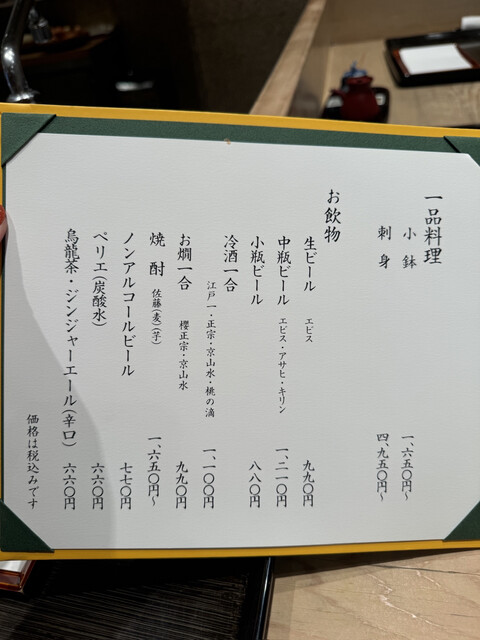 一品料理
小鉢 一、六五〇円〜
刺身 四、九五〇円〜
お飲物
生ビール ヱビス 九九〇円
中瓶ビール ヱビス・アサヒ・キリン 一、二一〇円
小瓶ビール 八八〇円
冷酒一合 江戸一・正宗・京山水・桃の滴 一、一〇〇円
お燗一合 櫻正宗・京山水 九九〇円
焼酎 佐藤(麦)(芋) 一、六五〇円〜
ノンアルコールビール 七七〇円
ペリエ(炭酸水) 六六〇円
烏龍茶・ジンジャーエール(辛口) 六六〇円
価格は税込みです